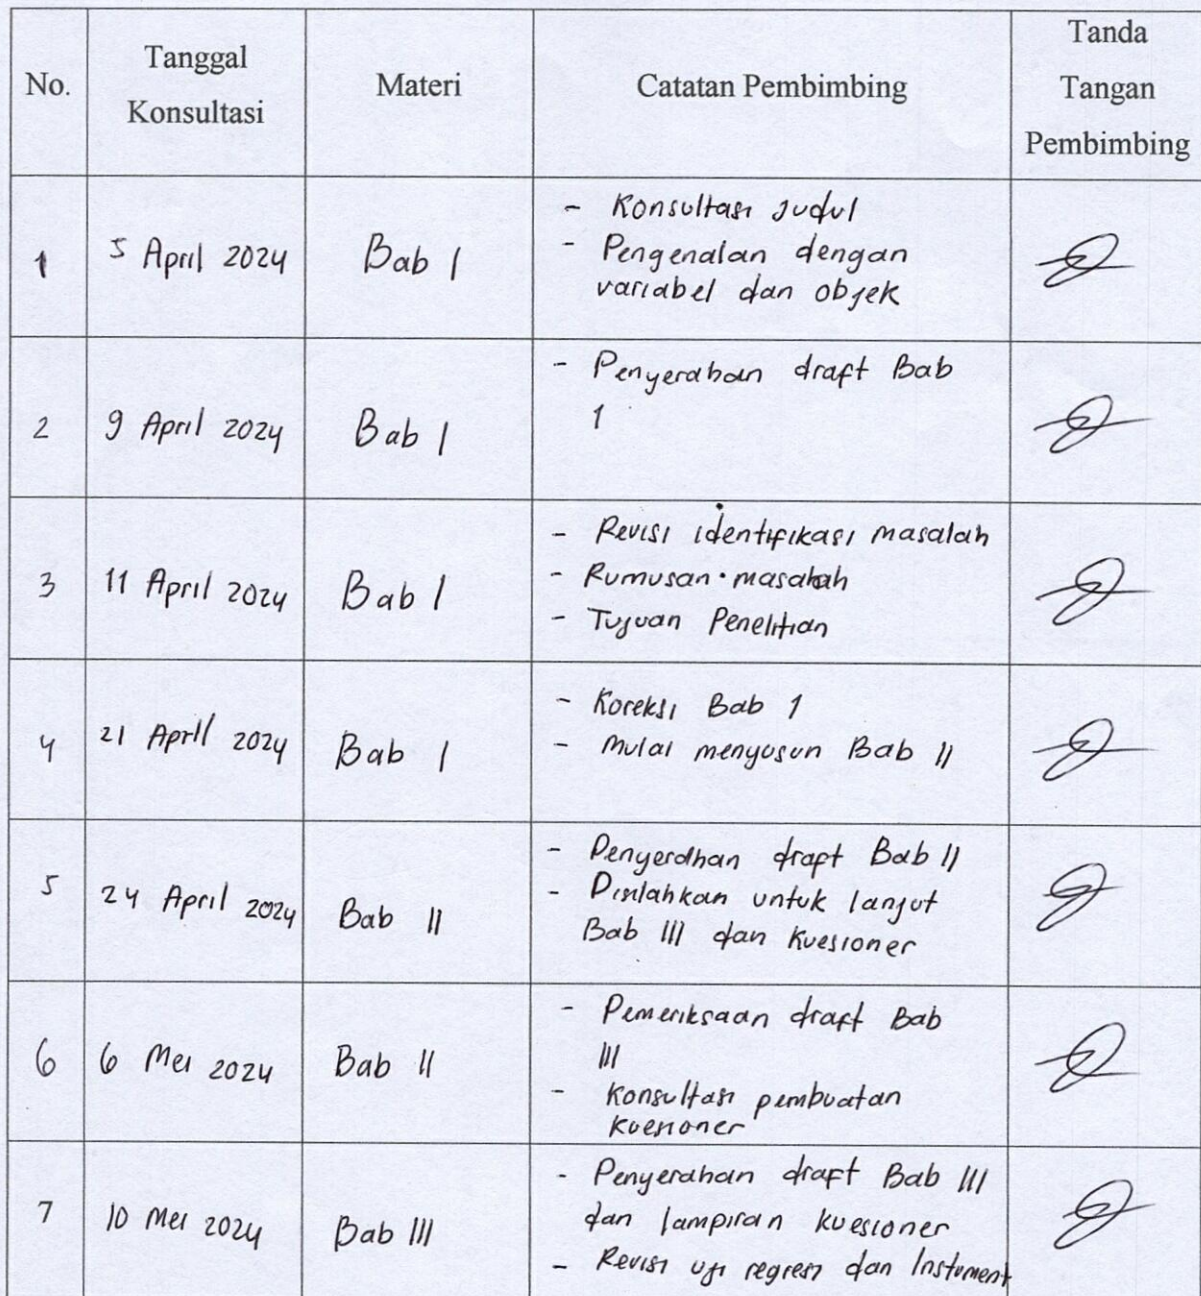 No.
Tanggal
Konsultasi
Materi
Catatan Pembimbing
Tanda
Tangan
Pembimbing
1
5 April 2024
Bab I
- Konsultasi Judul
- Pengenalan dengan
variabel dan objek
2
9 April 2024
Bab I
- Penyerahan draft Bab
1
3
11 April 2024
Bab I
- Revisi identifikasi masalah
- Rumusan masalah
- Tujuan Penelitian
4
21 April 2024
Bab I
- Koreksi Bab 1
- Mulai menyusun Bab II
5
24 April 2024
Bab II
- Penyerahan draft Bab II
- Disilahkan untuk lanjut
Bab III dan Kuesioner
6
6 Mei 2024
Bab II
- Pemeriksaan draft Bab
III
- Konsultasi pembuatan
kuesioner
7
10 Mei 2024
Bab III
- Penyerahan draft Bab III
dan lampiran kuesioner
- Revisi uji regresi dan Instument